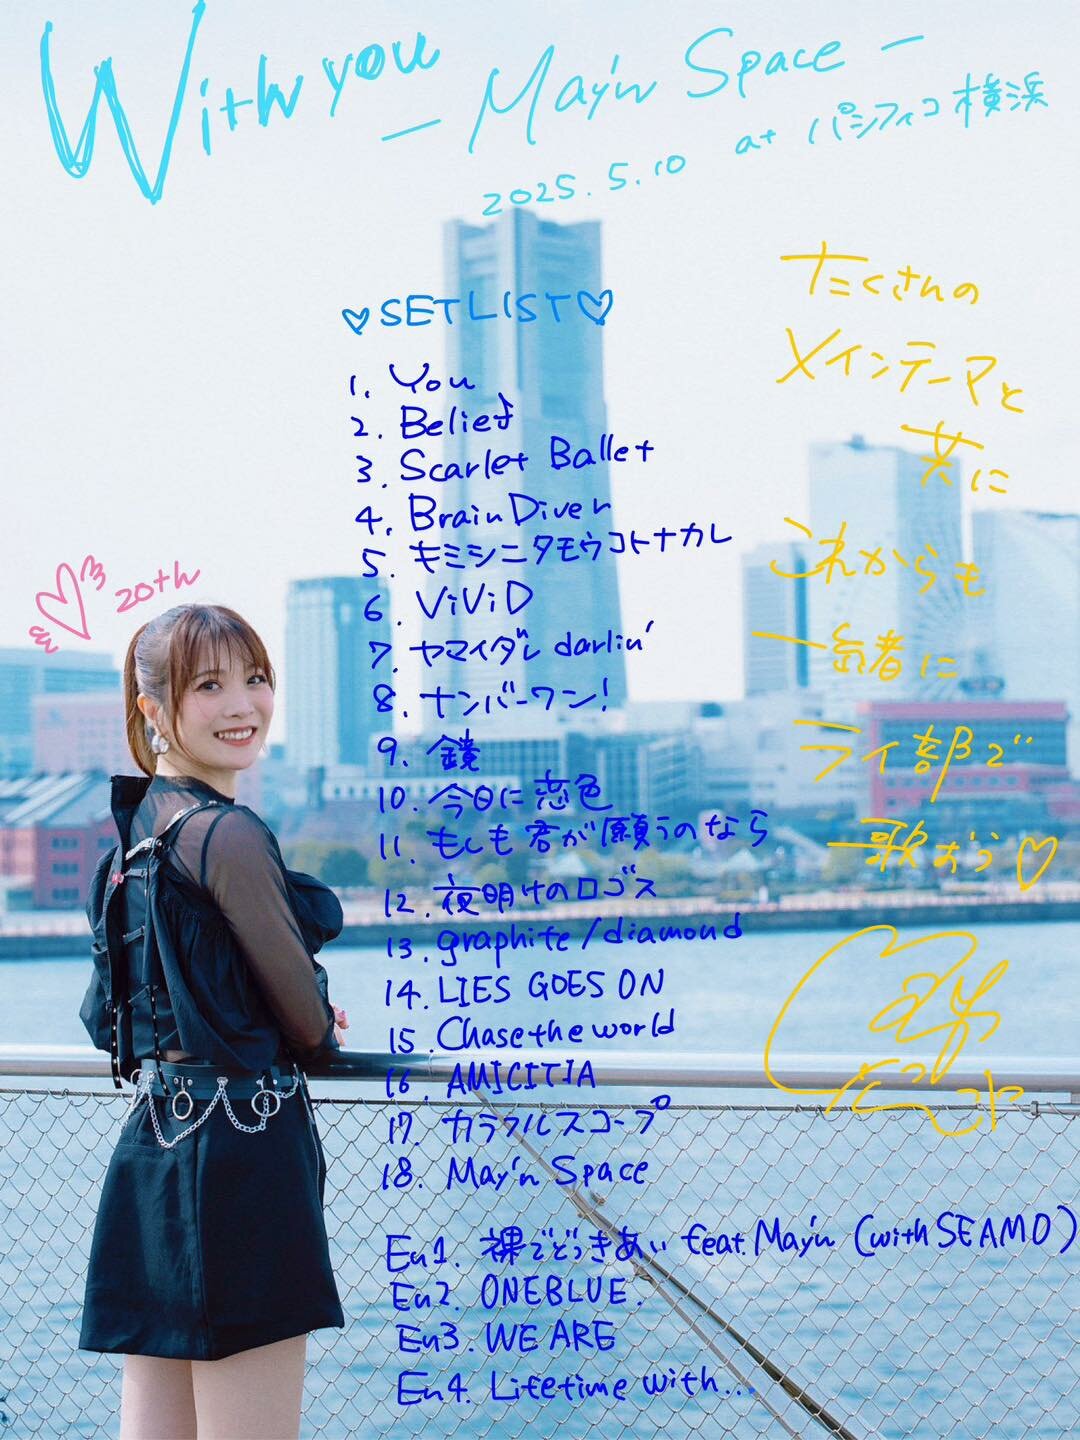 With you
- May'n Space -
2025.5.10 at パシフィコ横浜
♡SETLIST♡
1. You
2. Belief
3. Scarlet Ballet
4. Brain Diver
5. キミシニタモウコトナカレ
6. ViViD
7. ヤマイダレdarlin'
8. ナンバーワン!
9. 鏡
10. 今日に恋色
11. もしも君が願うのなら
12. 夜明けのロゴス
13. graphite/diamond
14. LIES GOES ON
15. Chase the world
16. AMICITIA
17. カラフルスコープ
18. May'n Space
En1. 裸でどつきあい feat. May'n (with SEAMO)
En2. ONEBLUE.
En3. WE ARE
En4. Lifetime with...
20th
たくさんの
メインテーマと
共に
これからも
一緒に
ライ部で
歌おう♡
May'n